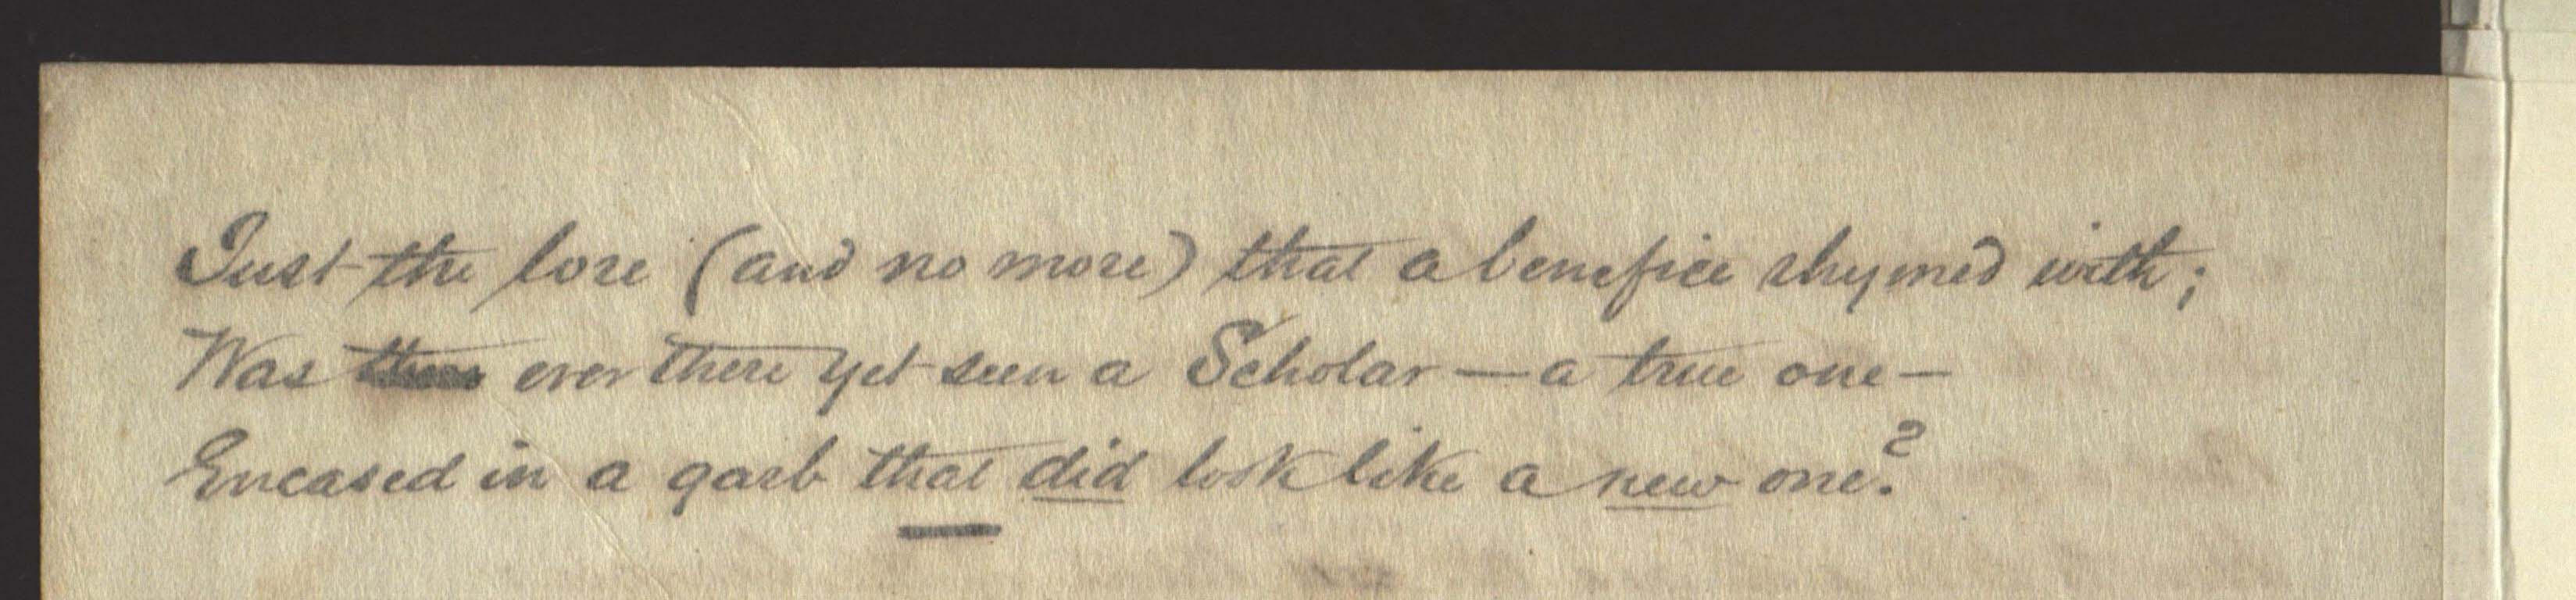 Just the lore (and no more) that a benefice rhymed with;
Was there ever there yet seen a Scholar — a true one —
Encased in a garb that did look like a new one?